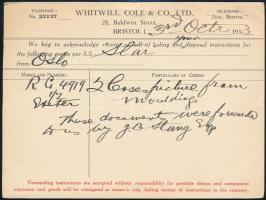 TELEPHONE:
No. 23137
WHITWILL, COLE & CO., LTD.
TELEGRAMS:
ZEAL, BRISTOL.
28, Baldwin Street,
BRISTOL 1. 3rd Octr 1953
We beg to acknowledge receipt of bill of lading and disposal instructions for
your
the following goods per S.S. Star
from Oslo
MARKS AND NUMBERS.
PARTICULARS OF GOODS.
R G 4919 2 Cases picture frame
Exeter mouldings
These documents were forwarded
to us by J.B. Stang Esq
Forwarding instructions are accepted without responsibility for possible delays and consequent
expenses, and goods will be managed at owner's risk, failing receipt of special instructions to cover.